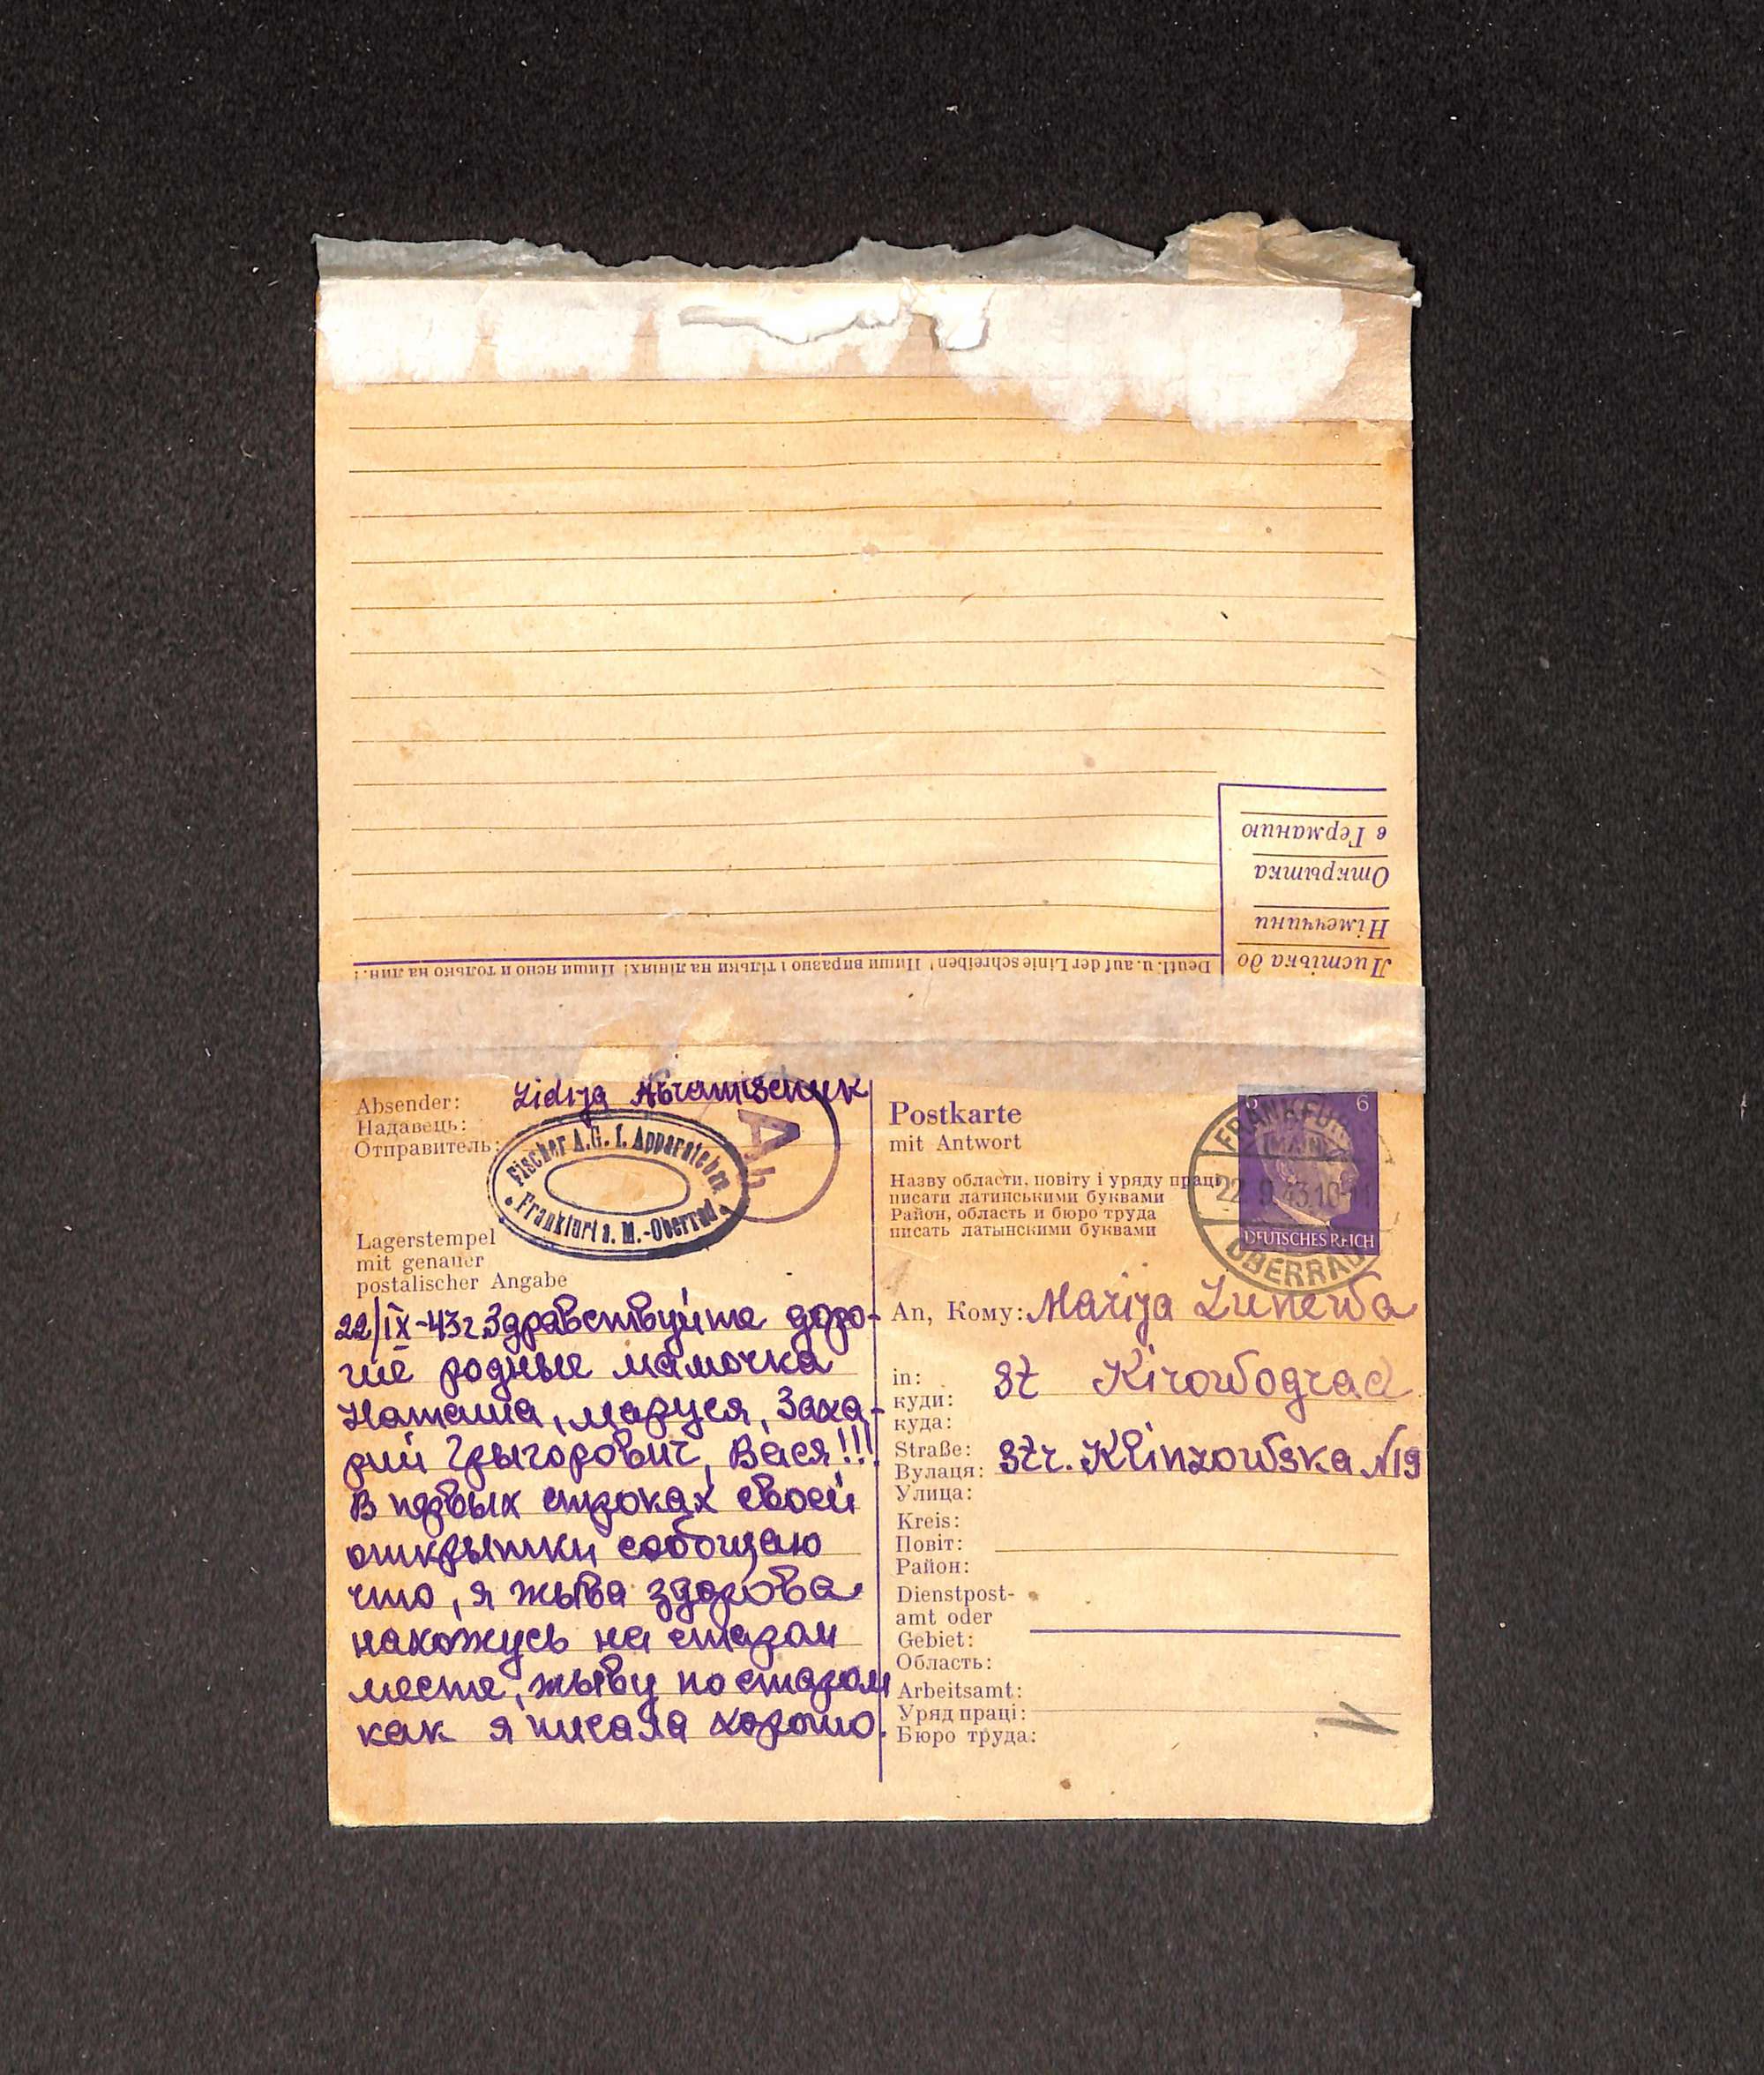 Листівка до
Німеччини
Открытка
в Германию
Deutl. u. auf der Linie schreiben! Пиши виразно і тільки на лініях! Пиши ясно и только на лин.!
Absender:
Надавець:
Отправитель:
Lidija Abramtschuk
Fischer A.G. f. Apparatebau
Frankfurt a. M.-Oberrad
Ab
Lagerstempel
mit genauer
postalischer Angabe
22/IX-43г. Здравствуйте доро-
гие родные мамочка
Наташа, маруся, Заха-
рий Грыгорович, Вася!!!
В первых строках своей
открытки сообщаю
что, я жыва здорова
нахожусь на старом
месте, жыву по старом
как я писала хорошо.
Postkarte
mit Antwort
Назву области, повіту і уряду праці
писати латинськими буквами
Район, область и бюро труда
писать латынскими буквами
6
FRANKFURT
(MAIN)
22.9.43.10-11
OBERRAD
DEUTSCHES REICH
An, Кому: Marija Lunewa
in:
куди:
куда:
St Kirowograd
Straße:
Вулаця:
Улица:
Str. Klinzowska N19
Kreis:
Повіт:
Район:
Dienstpost-
amt oder
Gebiet:
Область:
Arbeitsamt:
Уряд праці:
Бюро труда: